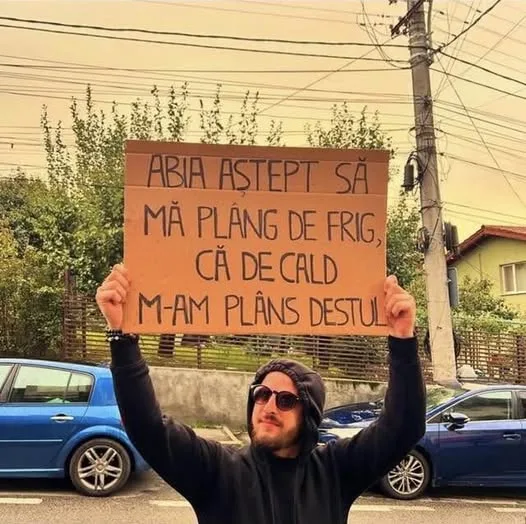 ABIA AȘTEPT SĂ
MĂ PLÂNG DE FRIG,
CĂ DE CALD
M-AM PLÂNS DESTUL